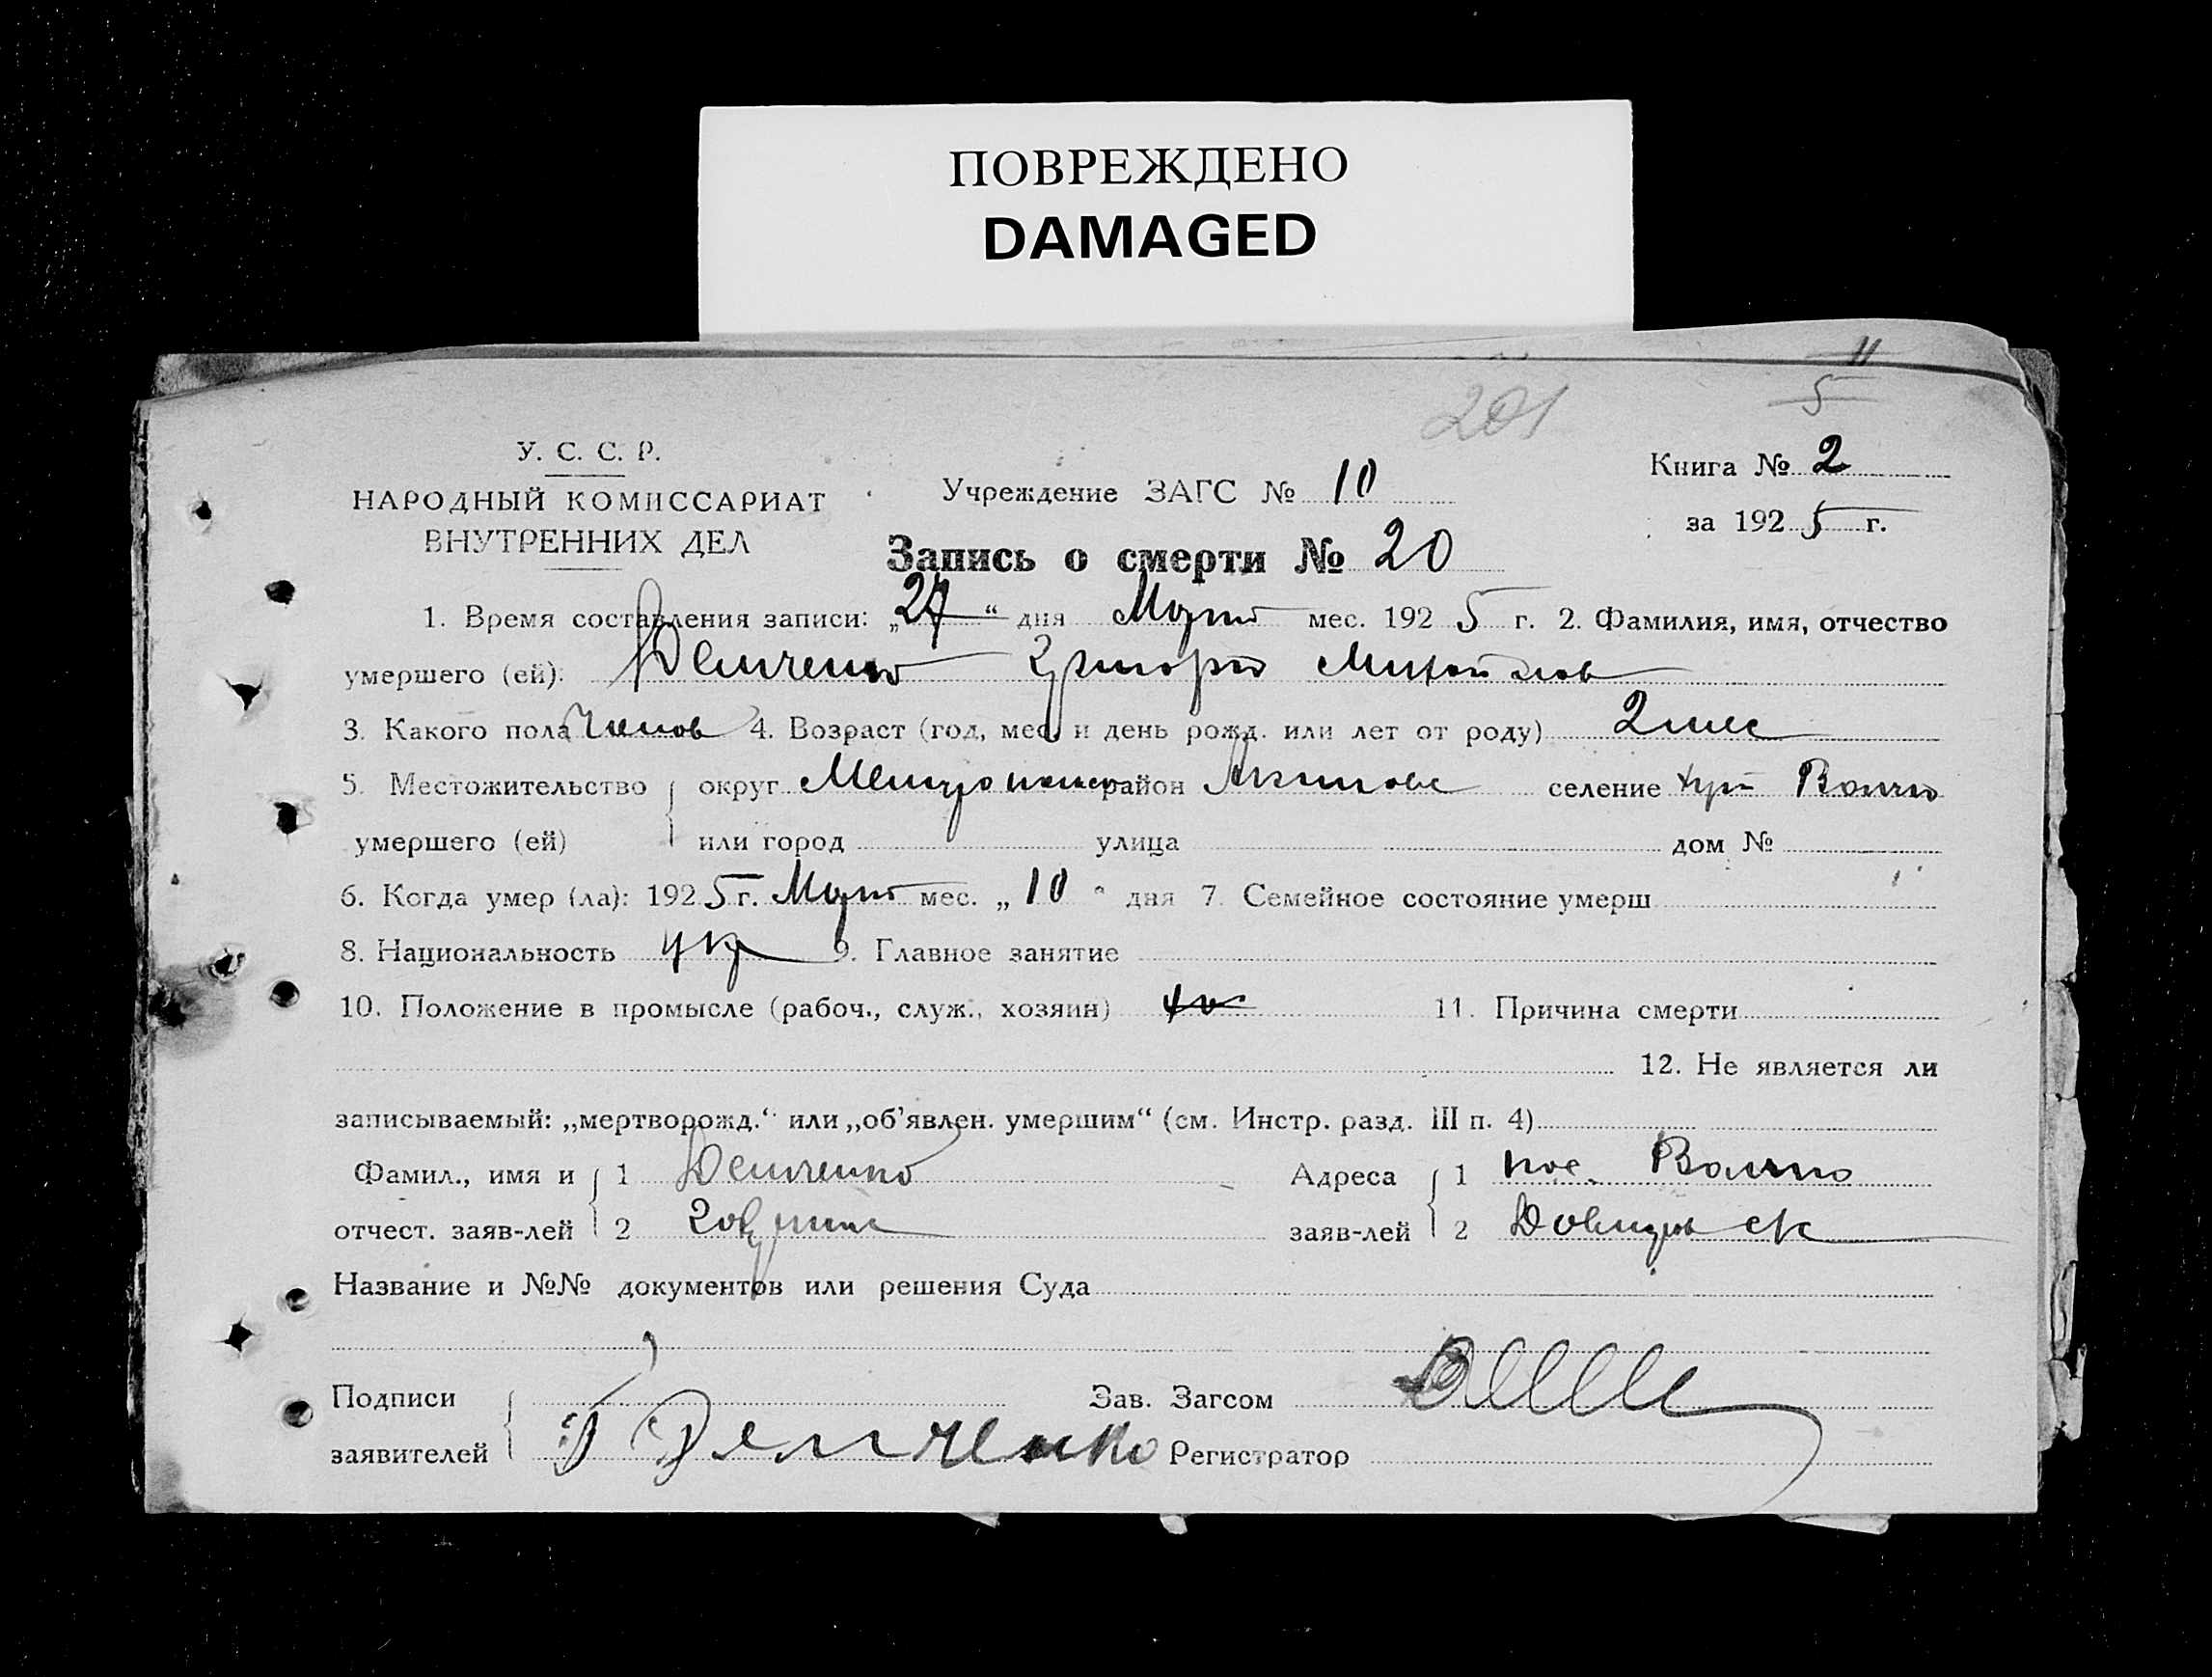 ПОВРЕЖДЕНО
DAMAGED
11
5
201
У. С. С. Р.
НАРОДНЫЙ КОМИССАРИАТ
ВНУТРЕННИХ ДЕЛ
Учреждение ЗАГС № 10
Книга № 2
за 1925 г.
Запись о смерти № 20
1. Время составления записи: „27“ дня Марта мес. 1925 г. 2. Фамилия, имя, отчество
умершего (ей): Демченко Михайлов
3. Какого пола 4. Возраст (год, мес. и день рожд. или лет от роду) 2 мес
5. Местожительство округ район селение хут
умершего (ей) или город улица дом №
6. Когда умер (ла): 1925 г. Марта мес. „10“ дня 7. Семейное состояние умерш
8. Национальность укр 9. Главное занятие
10. Положение в промысле (рабоч., служ., хозяин) 11. Причина смерти
12. Не является ли
записываемый: „мертворожд.“ или „об’явлен. умершим“ (см. Инстр. разд. III п. 4)
Фамил., имя и 1 Демченко Адреса 1 пос.
отчест. заяв-лей 2 заяв-лей 2
Название и №№ документов или решения Суда
Подписи Зав. Загсом
заявителей Демченко Регистратор